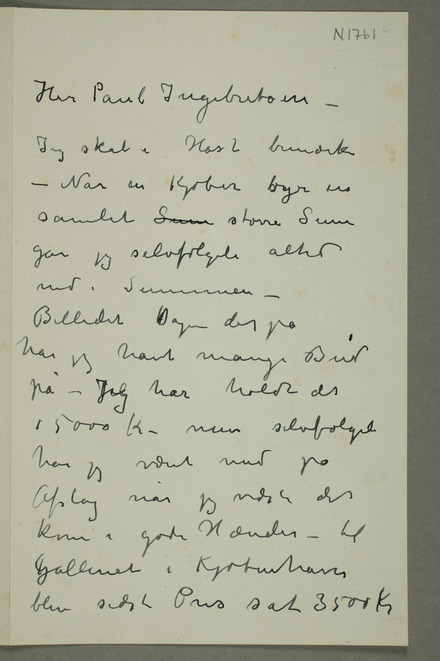 N 1761
Herr Paul Ingebretsen –
Jeg skal i Hast bemærke
– Når en Kjøber byr en
samlet Sum større Sum
går jeg selvfølgeli altid
ned i Summen –
Billedet Dagen derpå
har jeg havt mange Bud
på – Jeg har holdt det
i 5000 K – men selvfølgeli
har jeg vært med på
Afslag når jeg vidste det
kom i gode Hænder – til
Galleriet i Kjøbenhavn
blev sidst Pris sat 3500 Kr